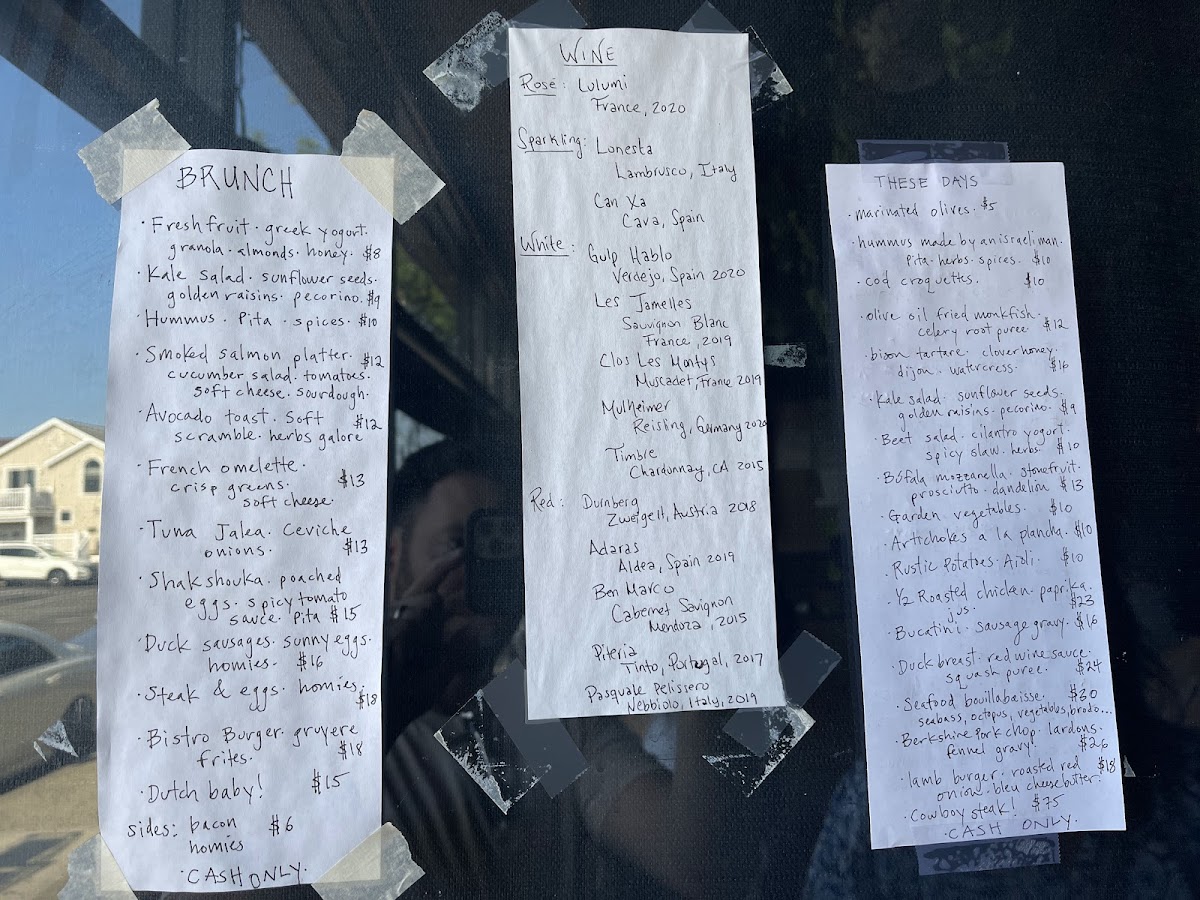 BRUNCH
· Fresh fruit · greek yogurt ·
granola · almonds · honey · $8
· Kale salad · sunflower seeds ·
golden raisins · pecorino · $9
· Hummus · Pita · spices · $10
· Smoked salmon platter · $12
cucumber salad · tomatoes ·
soft cheese · sourdough ·
· Avocado toast · soft $12
scramble · herbs galore
· French omelette ·
crisp greens · $13
soft cheese ·
· Tuna Jalea · Ceviche
onions · $13
· Shakshouka · poached
eggs · spicy tomato
sauce · pita $15
· Duck sausages · sunny eggs ·
homies · $16
· Steak & eggs · homies · $18
· Bistro Burger · gruyere
frites · $18
· Dutch baby! $15
sides: bacon $6
homies
· CASH ONLY ·
WINE
Rosé: Lulumi
France, 2020
Sparkling: Lonesta
Lambrusco, Italy
Can Xa
Cava, Spain
White: Gulp Hablo
Verdejo, Spain 2020
Les Jamelles
Sauvignon Blanc
France, 2019
Clos Les Montys
Muscadet, France 2019
Mulheimer
Reisling, Germany 2020
Timbre
Chardonnay, CA 2015
Red: Durnberg
Zweigelt, Austria 2018
Adaras
Aldea, Spain 2019
Ben Marco
Cabernet Savignon
Mendoza, 2015
Piteria
Tinto, Portugal, 2017
Pasquale Pelissero
Nebbiolo, Italy, 2019
THESE DAYS
· marinated olives · $5
· hummus made by an israeli man ·
pita · herbs · spices · $10
· cod croquettes · $10
· olive oil fried monkfish ·
celery root puree · $12
· bison tartare · clover honey ·
dijon · watercress · $16
· Kale salad · sunflower seeds ·
golden raisins · pecorino · $9
· Beet salad · cilantro yogurt ·
spicy slaw · herbs · $10
· Búfala mozzanella · stonefruit ·
prosciutto · dandelion $13
· Garden vegetables · $10
· Artichokes a la plancha · $10
· Rustic Potatoes · Aioli · $10
· ½ Roasted chicken · paprika ·
jus · $23
· Bucatini · sausage gravy · $16
· Duck breast · red wine sauce ·
squash puree · $24
· Seafood bouillabaisse · $30
seabass, octopus, vegetables, brodo...
· Berkshire Pork chop · lardons ·
fennel gravy! $26
· lamb burger · roasted red $18
onion · bleu cheese butter!
· Cowboy steak! $75
· CASH ONLY ·